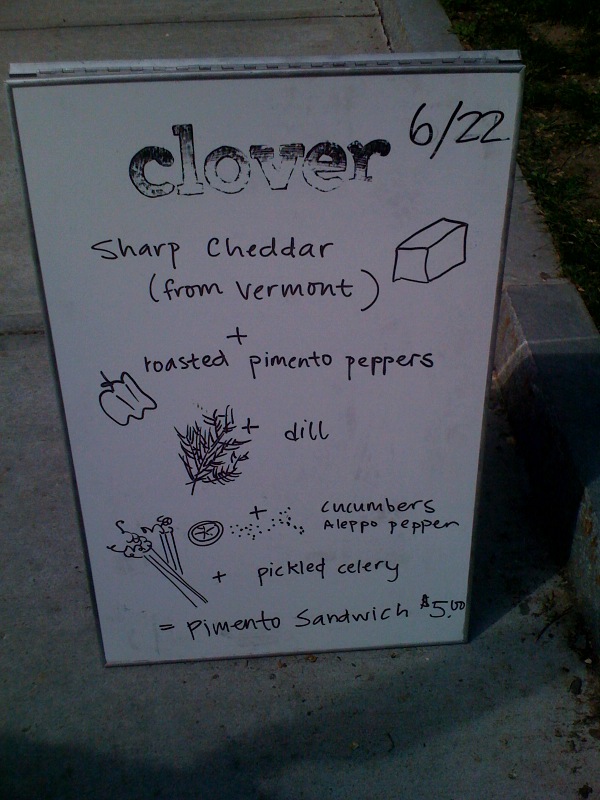 clover 6/22
Sharp Cheddar
(from Vermont)
+
roasted pimento peppers
+ dill
+ cucumbers
Aleppo pepper
+ pickled celery
= Pimento Sandwich $5.00